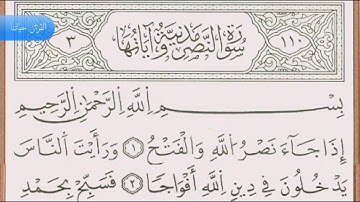 القرآن حياتنا
٣ سُورَةُ النَّصْرِ مَدَنِيَّةٌ وَآيَاتُهَا ١١٠
بِسْمِ اللَّهِ الرَّحْمَٰنِ الرَّحِيمِ
إِذَا جَاءَ نَصْرُ اللَّهِ وَالْفَتْحُ ١ وَرَأَيْتَ النَّاسَ
يَدْخُلُونَ فِي دِينِ اللَّهِ أَفْوَاجًا ٢ فَسَبِّحْ بِحَمْدِ